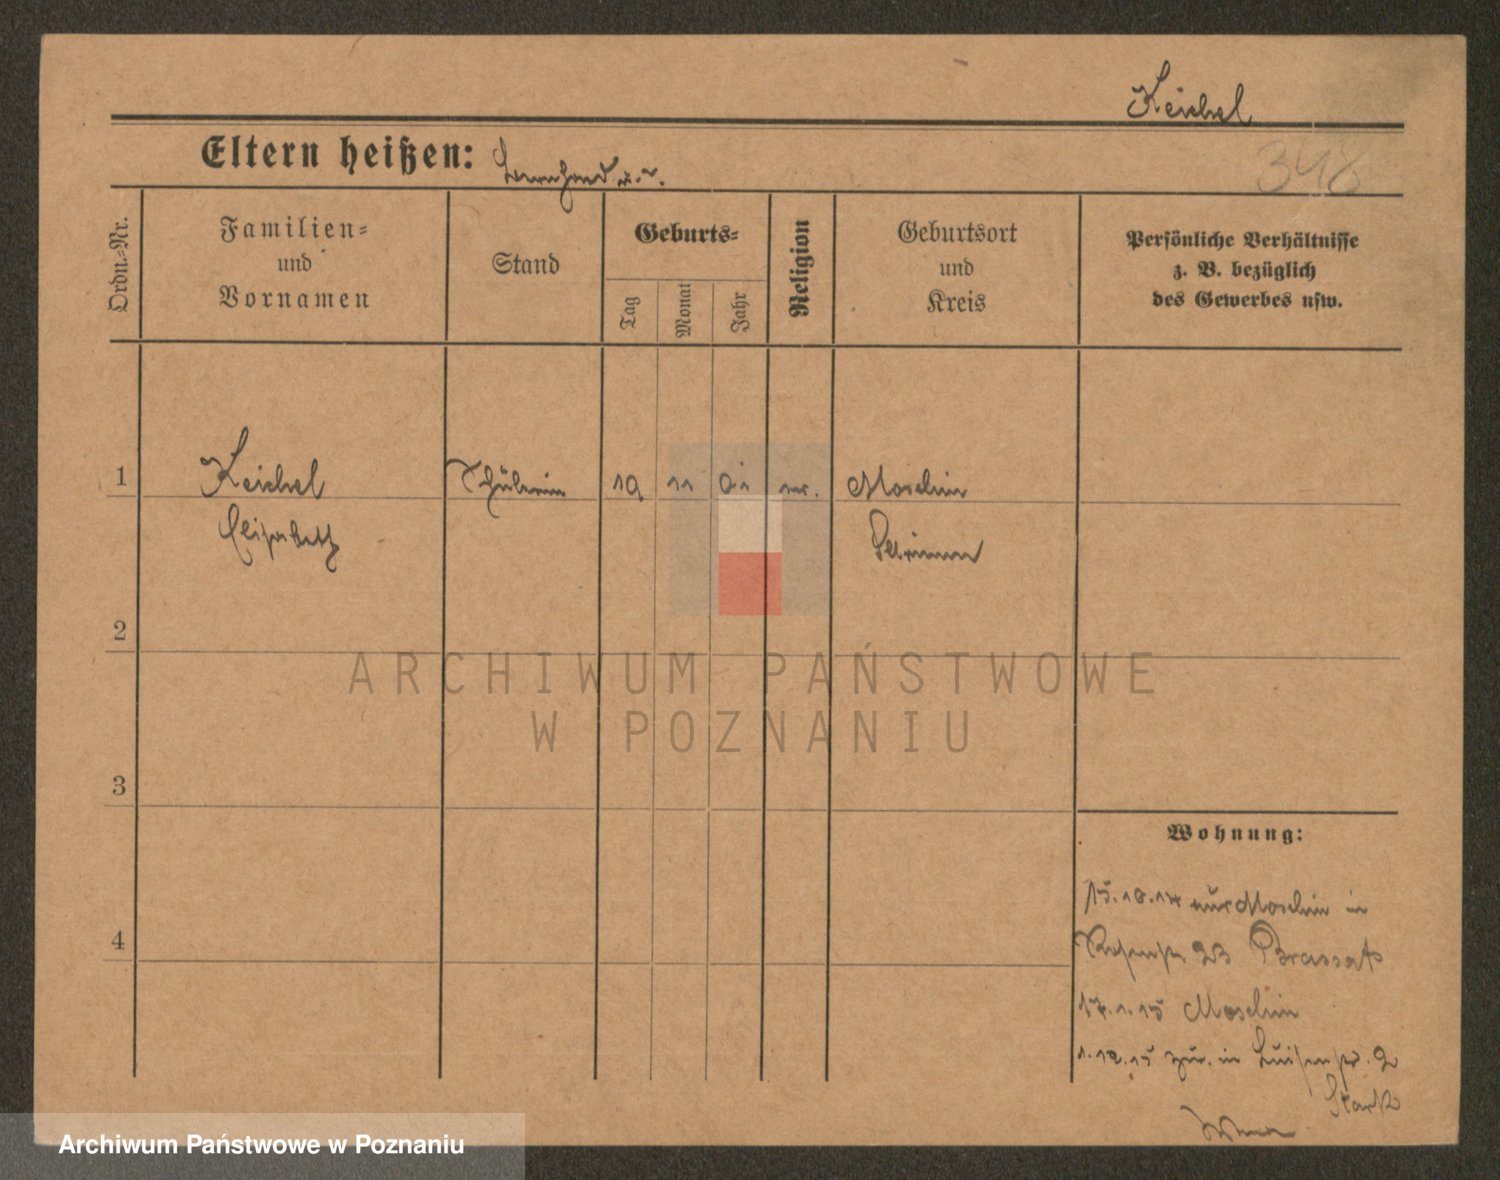 Keichel
Eltern heißen: Bernhard u. v.
348
Ordn.-Nr.
Familien-
und
Vornamen
Stand
Geburts-
Tag
Monat
Jahr
Religion
Geburtsort
und
Kreis
Persönliche Verhältnisse
z. B. bezüglich
des Gewerbes usw.
1
Keichel
Schülerin
19
11
01
ev.
Moschin
Elisabeth
Schrimm
2
ARCHIWUM PAŃSTWOWE
W POZNANIU
3
Wohnung:
15.10.14 Moschin in
4
23 Brassat
17.1.15 Moschin
1.10.15 zur. in Luisenstr. 2
Archiwum Państwowe w Poznaniu